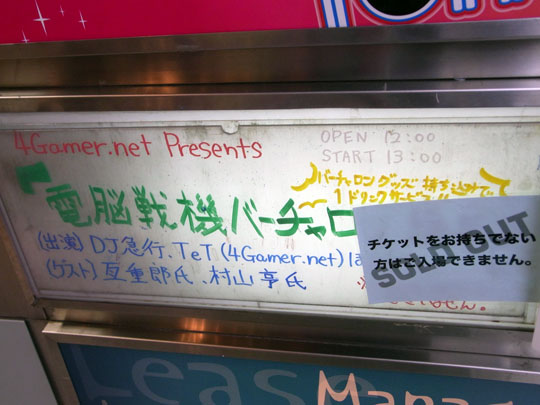 4Gamer.net Presents
OPEN 12:00
START 13:00
バーチャロングッズ持ち込みで
1ドリンクサービス
電脳戦機バーチャロ
(出演) DJ急行、TeT (4Gamer.net)
(ゲスト) 亙重郎氏、村山亨氏
SOLD OUT
チケットをお持ちでない
方はご入場できません。
Lease